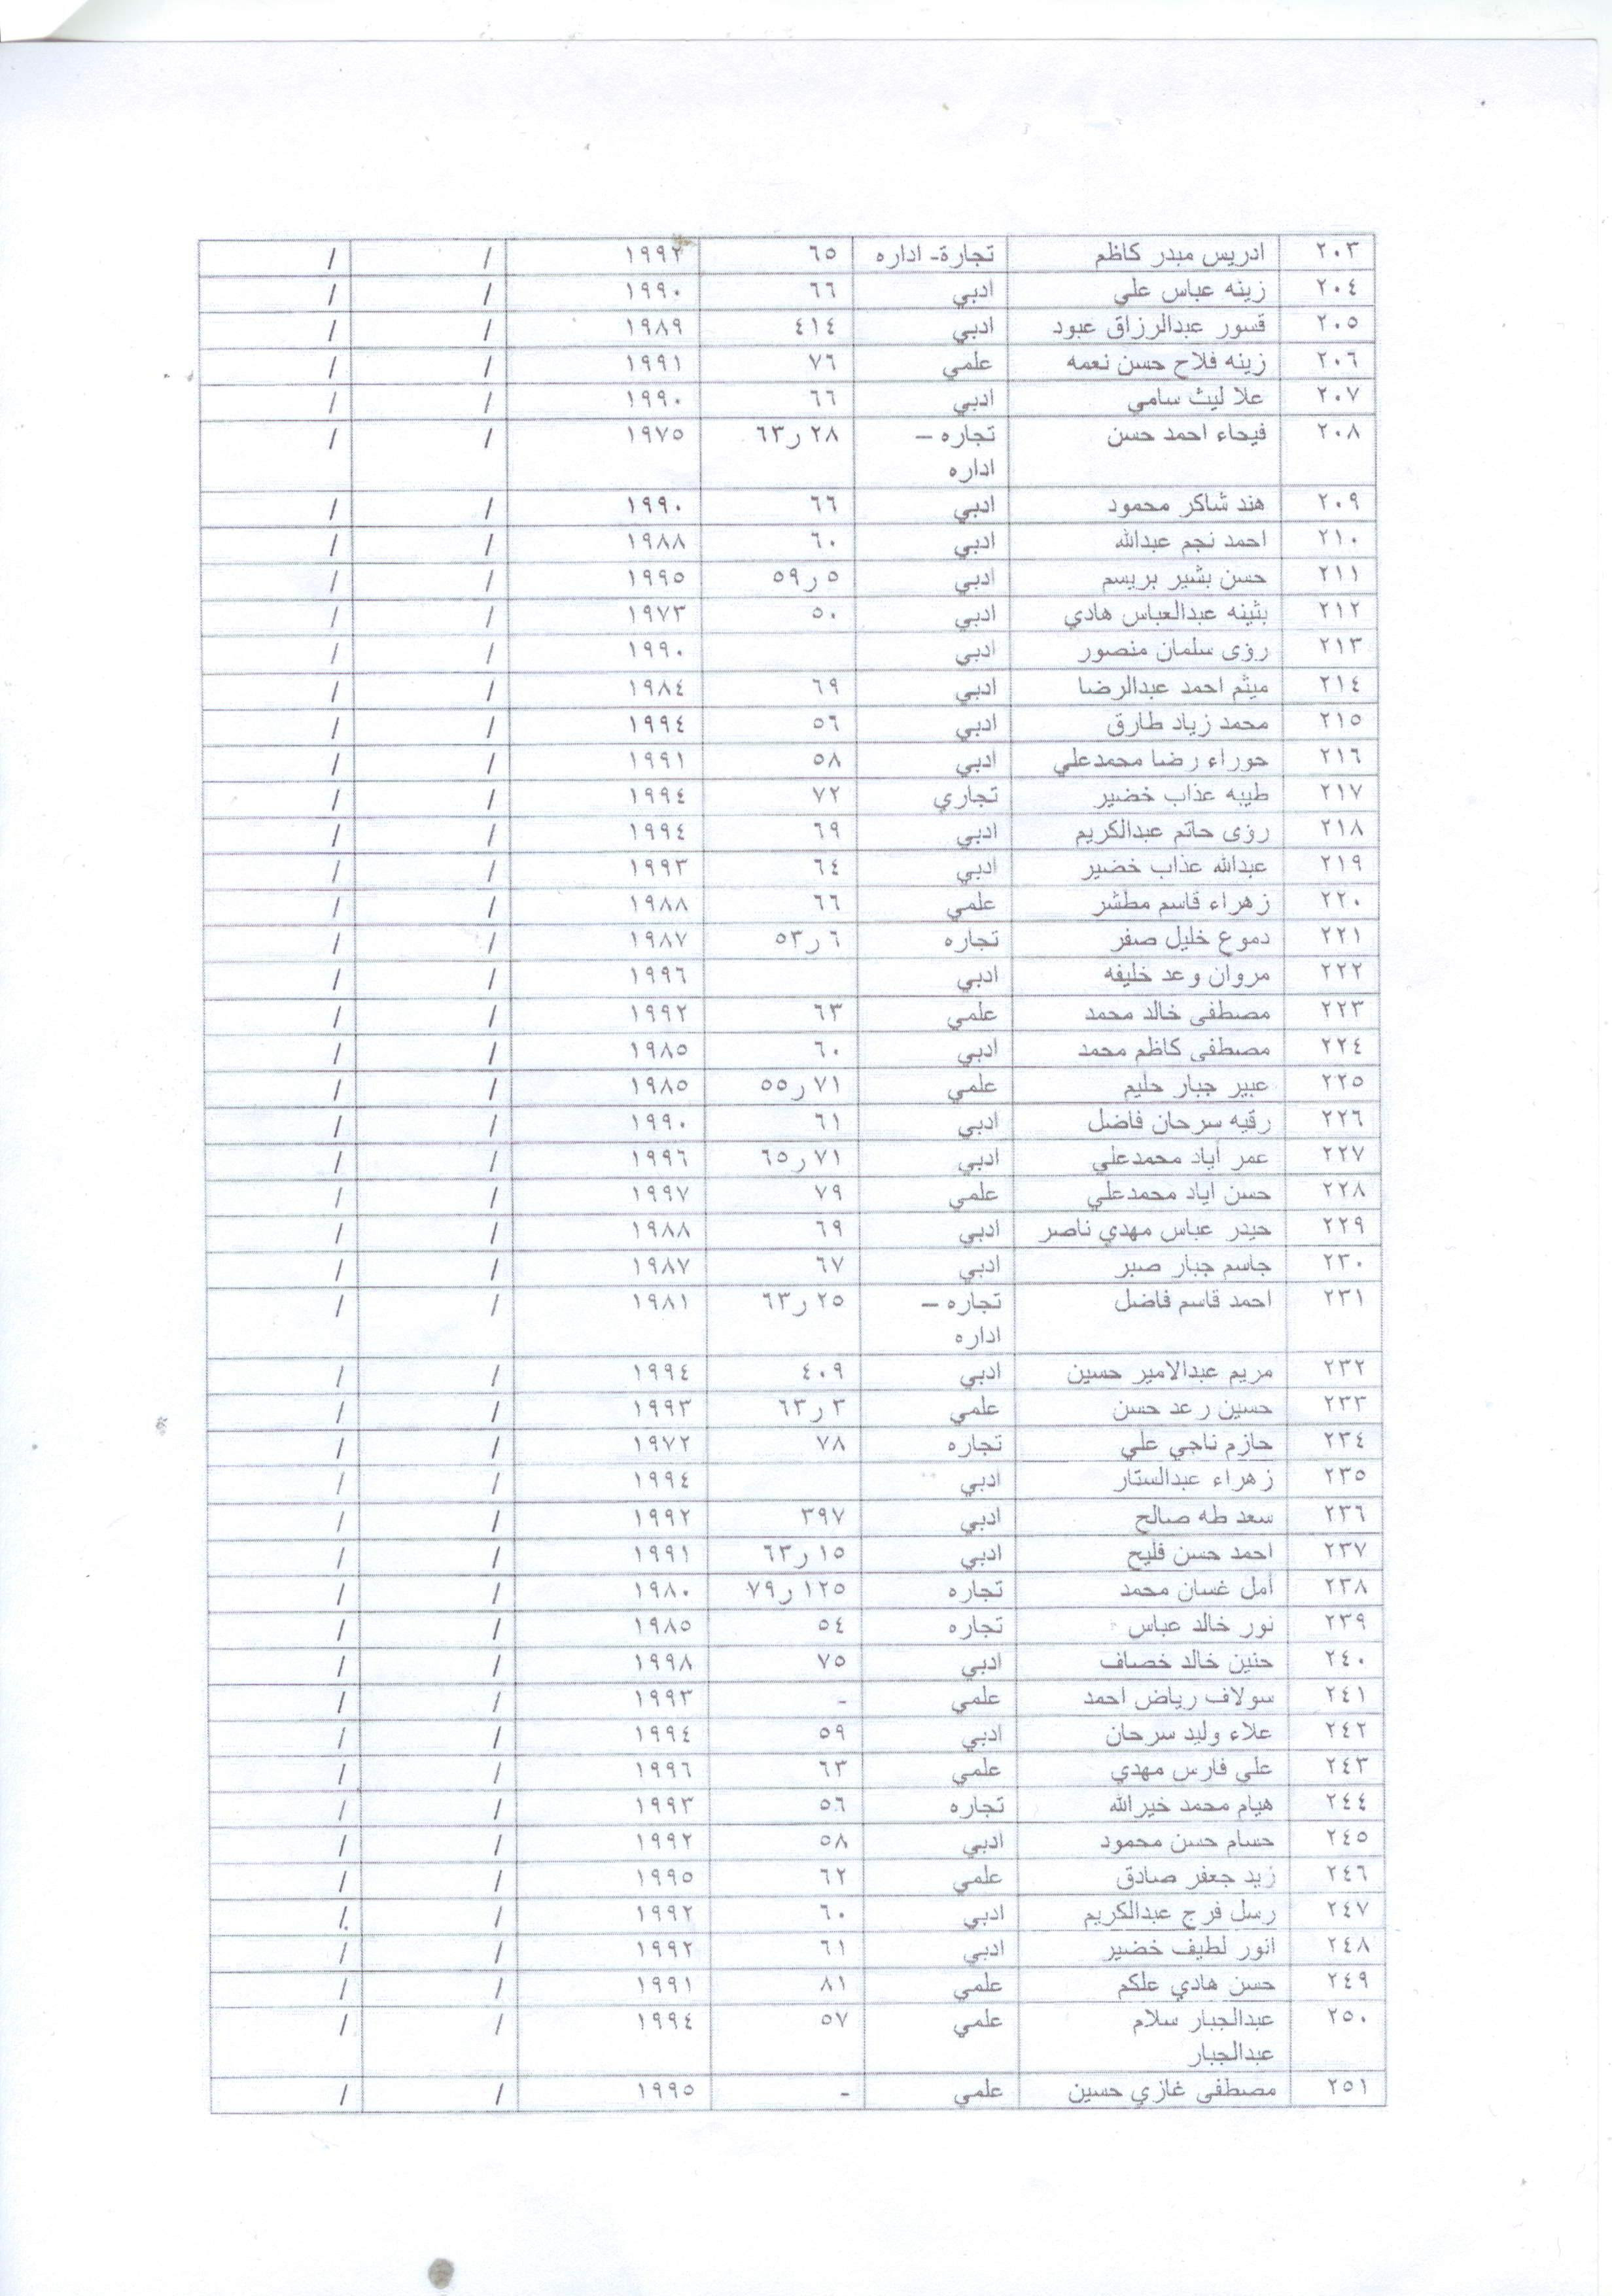 ٢٠٣ ادريس مبدر كاظم تجارة- اداره ٦٥ ١٩٩٢ / /
٢٠٤ زينه عباس علي ادبي ٦٦ ١٩٩٠ / /
٢٠٥ قسور عبدالرزاق عبود ادبي ٤١٤ ١٩٨٩ / /
٢٠٦ زينه فلاح حسن نعمه علمي ٧٦ ١٩٩١ / /
٢٠٧ علا ليث سامي ادبي ٦٦ ١٩٩٠ / /
٢٠٨ فيحاء احمد حسن تجاره – ٢٨ر٦٣ ١٩٧٥ / /
اداره
٢٠٩ هند شاكر محمود ادبي ٦٦ ١٩٩٠ / /
٢١٠ احمد نجم عبدالله ادبي ٦٠ ١٩٨٨ / /
٢١١ حسن بشير بريسم ادبي ٥ر٥٩ ١٩٩٥ / /
٢١٢ بثينه عبدالعباس هادي ادبي ٥٠ ١٩٧٣ / /
٢١٣ رؤى سلمان منصور ادبي ١٩٩٠ / /
٢١٤ ميثم احمد عبدالرضا ادبي ٦٩ ١٩٨٤ / /
٢١٥ محمد زياد طارق ادبي ٥٦ ١٩٩٤ / /
٢١٦ حوراء رضا محمدعلي ادبي ٥٨ ١٩٩١ / /
٢١٧ طيبه عذاب خضير تجاري ٧٢ ١٩٩٤ / /
٢١٨ رؤى حاتم عبدالكريم ادبي ٦٩ ١٩٩٤ / /
٢١٩ عبدالله عذاب خضير ادبي ٦٤ ١٩٩٣ / /
٢٢٠ زهراء قاسم مطشر علمي ٦٦ ١٩٨٨ / /
٢٢١ دموع خليل صفر تجاره ٦ر٥٣ ١٩٨٧ / /
٢٢٢ مروان وعد خليفه ادبي ١٩٩٦ / /
٢٢٣ مصطفى خالد محمد علمي ٦٣ ١٩٩٢ / /
٢٢٤ مصطفى كاظم محمد ادبي ٦٠ ١٩٨٥ / /
٢٢٥ عبير جبار حليم علمي ٧١ر٥٥ ١٩٨٥ / /
٢٢٦ رقيه سرحان فاضل ادبي ٦١ ١٩٩٠ / /
٢٢٧ عمر أياد محمدعلي ادبي ٧١ر٦٥ ١٩٩٦ / /
٢٢٨ حسن اياد محمدعلي علمي ٧٩ ١٩٩٧ / /
٢٢٩ حيدر عباس مهدي ناصر ادبي ٦٩ ١٩٨٨ / /
٢٣٠ جاسم جبار صبر ادبي ٦٧ ١٩٨٧ / /
٢٣١ احمد قاسم فاضل تجاره – ٢٥ر٦٣ ١٩٨١ / /
اداره
٢٣٢ مريم عبدالامير حسين ادبي ٤٠٩ ١٩٩٤ / /
٢٣٣ حسين رعد حسن علمي ٣ر٦٣ ١٩٩٣ / /
٢٣٤ حازم ناجي علي تجاره ٧٨ ١٩٧٢ / /
٢٣٥ زهراء عبدالستار ادبي ١٩٩٤ / /
٢٣٦ سعد طه صالح ادبي ٣٩٧ ١٩٩٢ / /
٢٣٧ احمد حسن فليح ادبي ١٥ر٦٣ ١٩٩١ / /
٢٣٨ أمل غسان محمد تجاره ١٢٥ر٧٩ ١٩٨٠ / /
٢٣٩ نور خالد عباس تجاره ٥٤ ١٩٨٥ / /
٢٤٠ حنين خالد خصاف ادبي ٧٥ ١٩٩٨ / /
٢٤١ سولاف رياض احمد علمي - ١٩٩٣ / /
٢٤٢ علاء وليد سرحان ادبي ٥٩ ١٩٩٤ / /
٢٤٣ علي فارس مهدي علمي ٦٣ ١٩٩٦ / /
٢٤٤ هيام محمد خيرالله تجاره ٥٦ ١٩٩٣ / /
٢٤٥ حسام حسن محمود ادبي ٥٨ ١٩٩٢ / /
٢٤٦ زيد جعفر صادق علمي ٦٢ ١٩٩٥ / /
٢٤٧ رسل فرج عبدالكريم ادبي ٦٠ ١٩٩٢ / /
٢٤٨ انور لطيف خضير ادبي ٦١ ١٩٩٢ / /
٢٤٩ حسن هادي علكم علمي ٨١ ١٩٩١ / /
٢٥٠ عبدالجبار سلام علمي ٥٧ ١٩٩٤ / /
عبدالجبار
٢٥١ مصطفى غازي حسين علمي - ١٩٩٥ / /